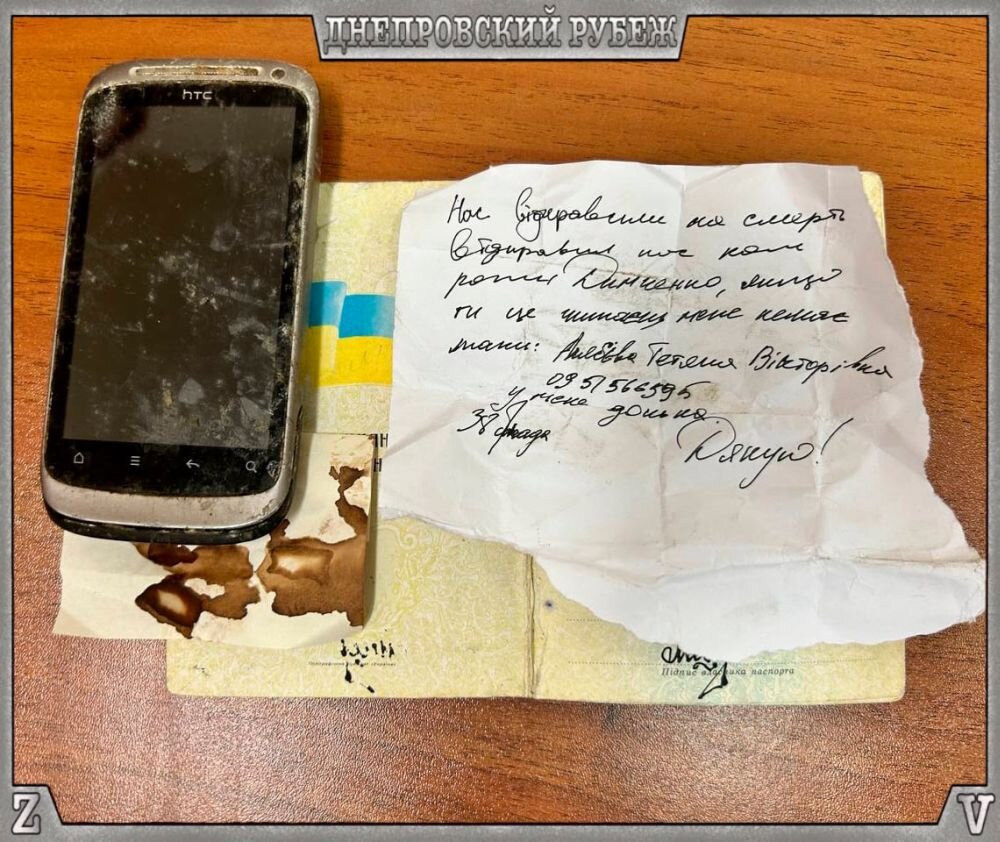 ДНЕПРОВСКИЙ РУБЕЖ
hтс
Нас відправили на смерть
відправил нас ком
роти Димченко, якщо
ти це читаєш мене немає
мати: Тетяна Вікторівна
у мене донька
38 бригада
Дякую!
Підпис власника паспорта
Z
V